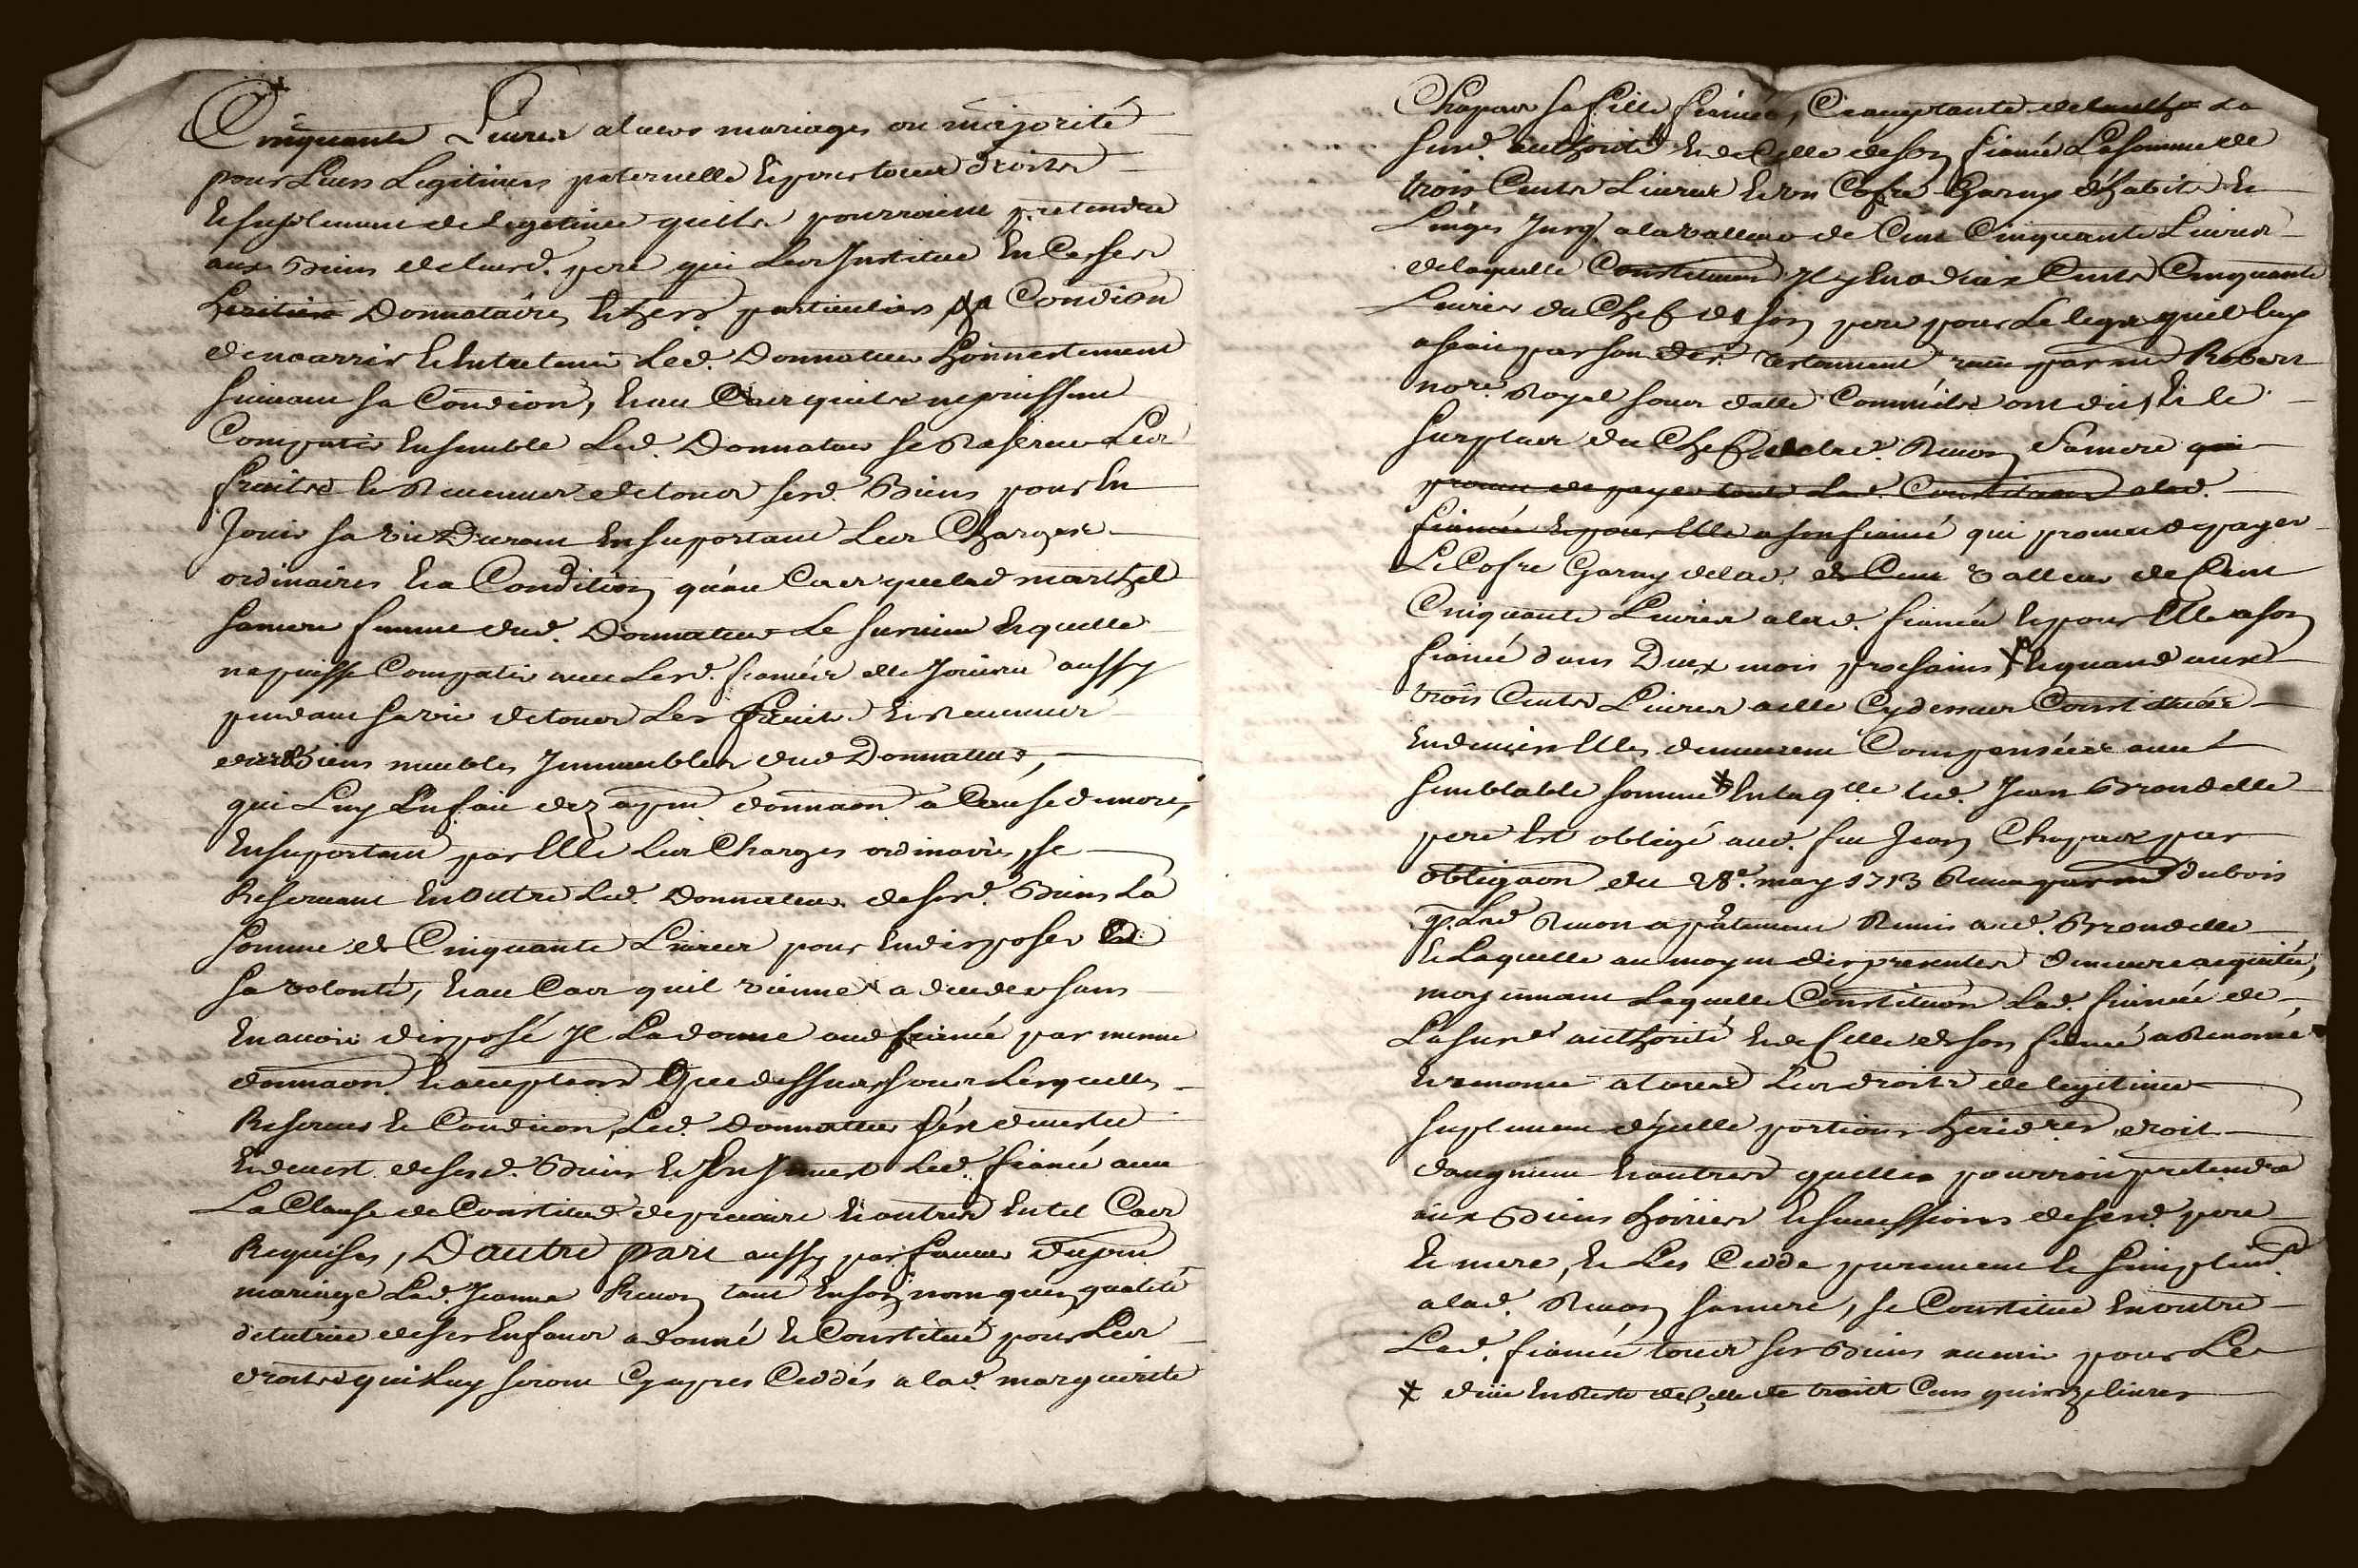 Cinquante Livres a leurs mariages ou majorité
pour Leurs Legitimes paternelle et pour tous droits
et suplement de Legitime quils pourroient pretendre
aux Biens de leurd. pere qui Les Institue En Ces
heritiers Donnataires et hers. particuliers a Condion
de nourrir et Entretenir Led. Donnateur honnestement
suivant sa Condion, et au Cas quils ne puissent
Compatir Ensemble Led. Donnateur se Reserve Les
fruits et Revenus de tous sesd. Biens pour En
Jouir sa vie Durant En suportant Les Charges
ordinaires et a Condition qu'au Cas que lad marthe
sa mere femme dud. Donnateur Le survive et quelle
ne puisse Compatir avec Lesd. fiancés elle Jouira aussy
pendant sa vie de tous Les fruits et Revenus
des Biens meubles Immeubles dud Donnateur,
qui Luy En fait dez apnt donnaon a Cause de mort,
En suportant par Elle Les Charges ordinaires, se
Reservant En outre Led. Donnateur de sesd. Biens La
somme de Cinquante Livres pour En disposer a
sa volonté, et au Cas quil vienne a deceder sans
En avoir disposé Il La donne aud fiancé par meme
donnaon et acceptaon que dessus, sous Lesquelles
Reserves et Condicion, Led. Donnateur s'est demis
et devest de sesd. Biens et En Invest Led. fiancé avec
La Clause de Constitud de precaire et autres En tel Cas
Requises, D'autre part aussy pour faveur dupnt
mariage Lad. Jeanne Remon tant En son nom quen qualité
de tutrice de ses Enfans a donné et Constitué pour Les
droits qui Luy seront Cy apres Ceddés a lad. marguerite
Chapaux sa fille fiancée, Ceacceptante de La
susd. authorité et de Celle de son fiancé La somme de
trois Cents Livres et un Cofre Garny d'habits et
Linges Jusq. a la valleur de Cent Cinquante Livres
de laquelle Constituon Il y En a deux Cents Cinquante
Livres du Chef de son pere pour Le legs quil luy
a fait par son der. testament receu par me Robert
nore. Royal sous datte Comm'ils ont dit, et le
surplus du Chef de lad. Remon sa mere qui
promet de payer toute Lad. Constituon a lad.
fiancée et pour Elle a son fiancé qui promet de payer
Le Cofre Garny de lad. de Cent valleur de Cent
Cinquante Livres a lad. fiancée et pour Elle a son
fiancé dans Deux mois prochains et quand aux
trois Cents Livres a elle Cy dessus Constituées
En deniers Elles demeurent Compensées avec
semblable somme * En laqlle. led. Jean Brondelle
pere Est obligé aud. feu Jean Chapaux par
obligaon du 28e. may 1713 Receu par me dubois
q. Lad Remon a pntement Remis aud. Brondelle
et Laquelle au moyen des presentes demeure acquitée,
moyennant Laquelle Constituon Lad. fiancée de
La susd. authorité et de Celle de son fiancé a Renoncé
et renonce a tous Les droits de legitime
suplement d'ycelle portions hereditres. droit
daugment et autres quelle pourroit pretendre
aux Biens hoiries et successions de sesd. pere
et mere, et Les Cedde purement et simplemt.
a lad. Remon sa mere, se Constitue En outre
Lad. fiancée tous ses Biens avenir pour Les
* due En Reste de Celle de trois Cens quinze livres